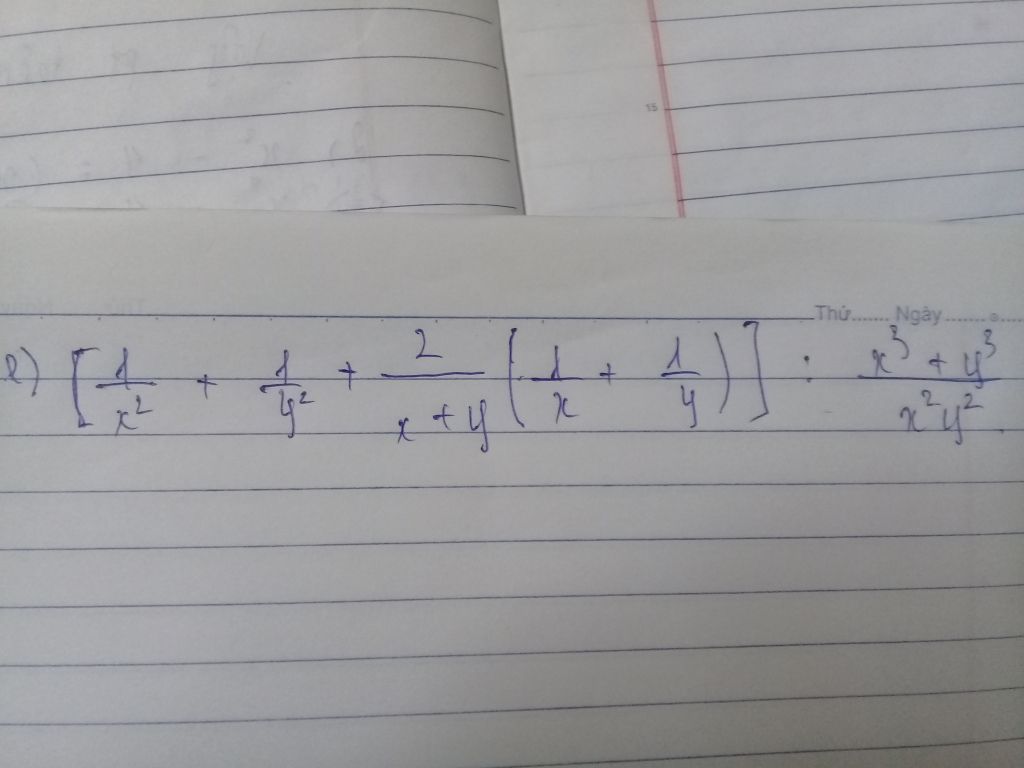 15
Thứ........ Ngày ........
2) [1/x² + 1/y² + 2/(x + y) (1/x + 1/y)] : (x³ + y³)/(x²y²)